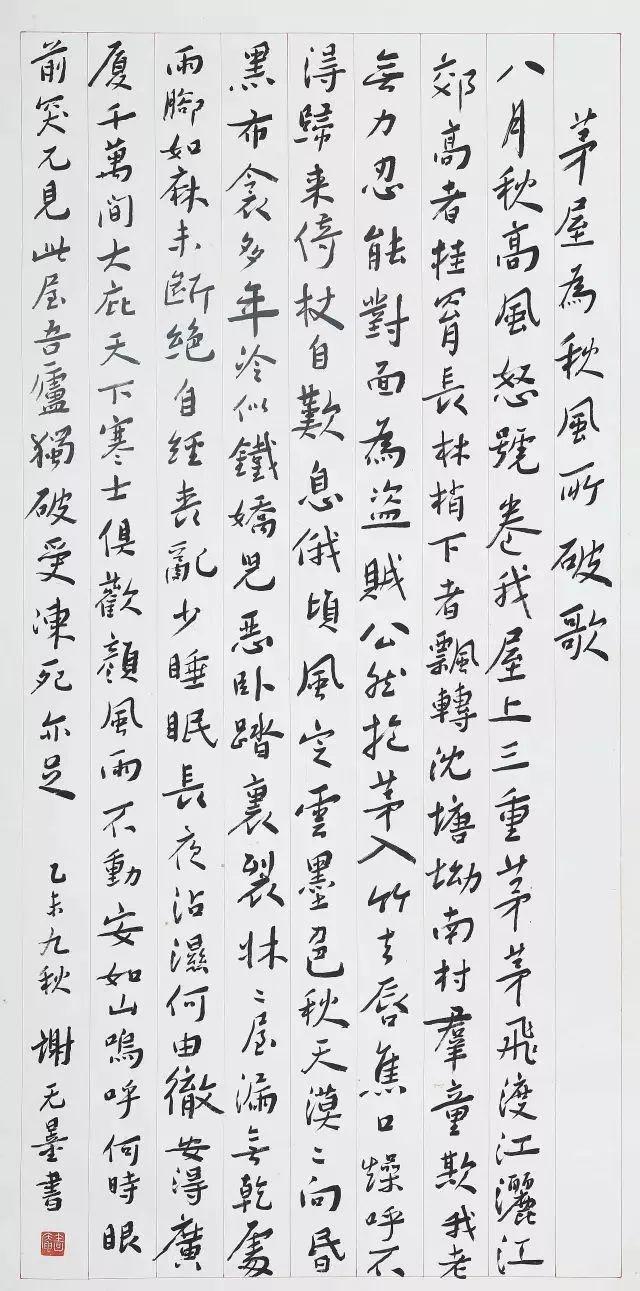 茅屋為秋風所破歌
八月秋高風怒號卷我屋上三重茅茅飛渡江灑江
郊高者挂罥長林梢下者飄轉沈塘坳南村羣童欺我老
無力忍能對面為盜賊公然抱茅入竹去唇焦口燥呼不
得歸来倚杖自歎息俄頃風定雲墨色秋天漠〻向昏
黑布衾多年冷似鐵嬌兒恶卧踏裏裂牀〻屋漏無乾處
雨腳如麻未斷絶自經喪亂少睡眠長夜沾濕何由徹安得廣
厦千萬間大庇天下寒士俱歡顏風雨不動安如山嗚呼何時眼
前突兀見此屋吾廬獨破受凍死亦足
乙未九秋 謝无書